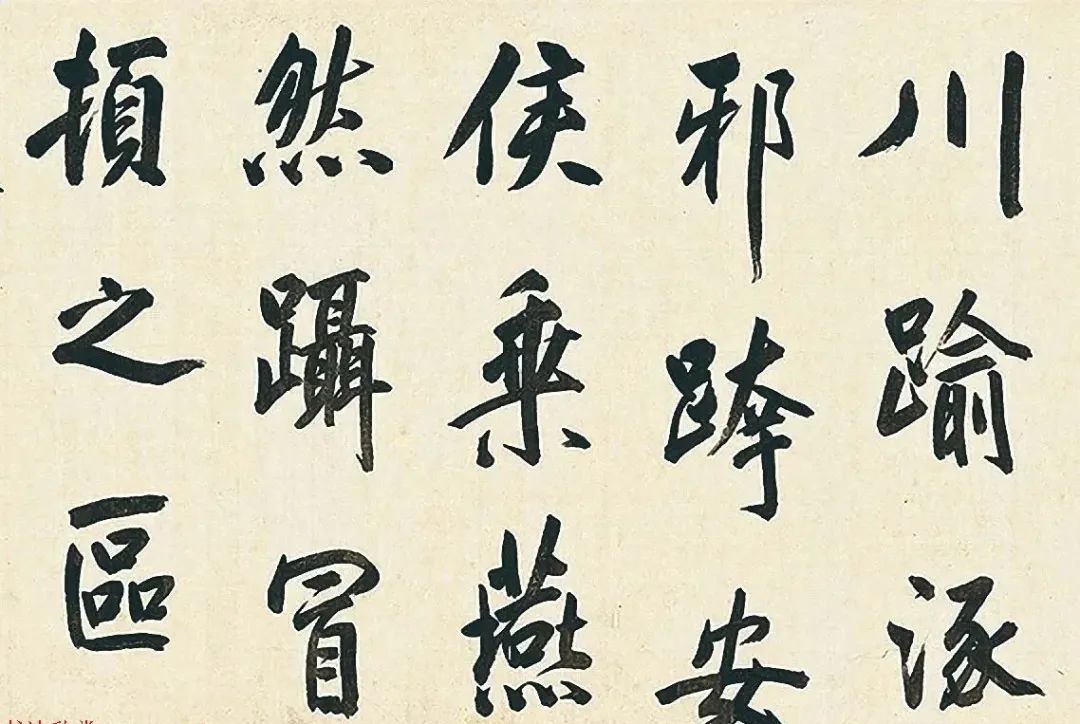 川踰涿
邪跨安
侯乘燕
然躡冒
頓之區